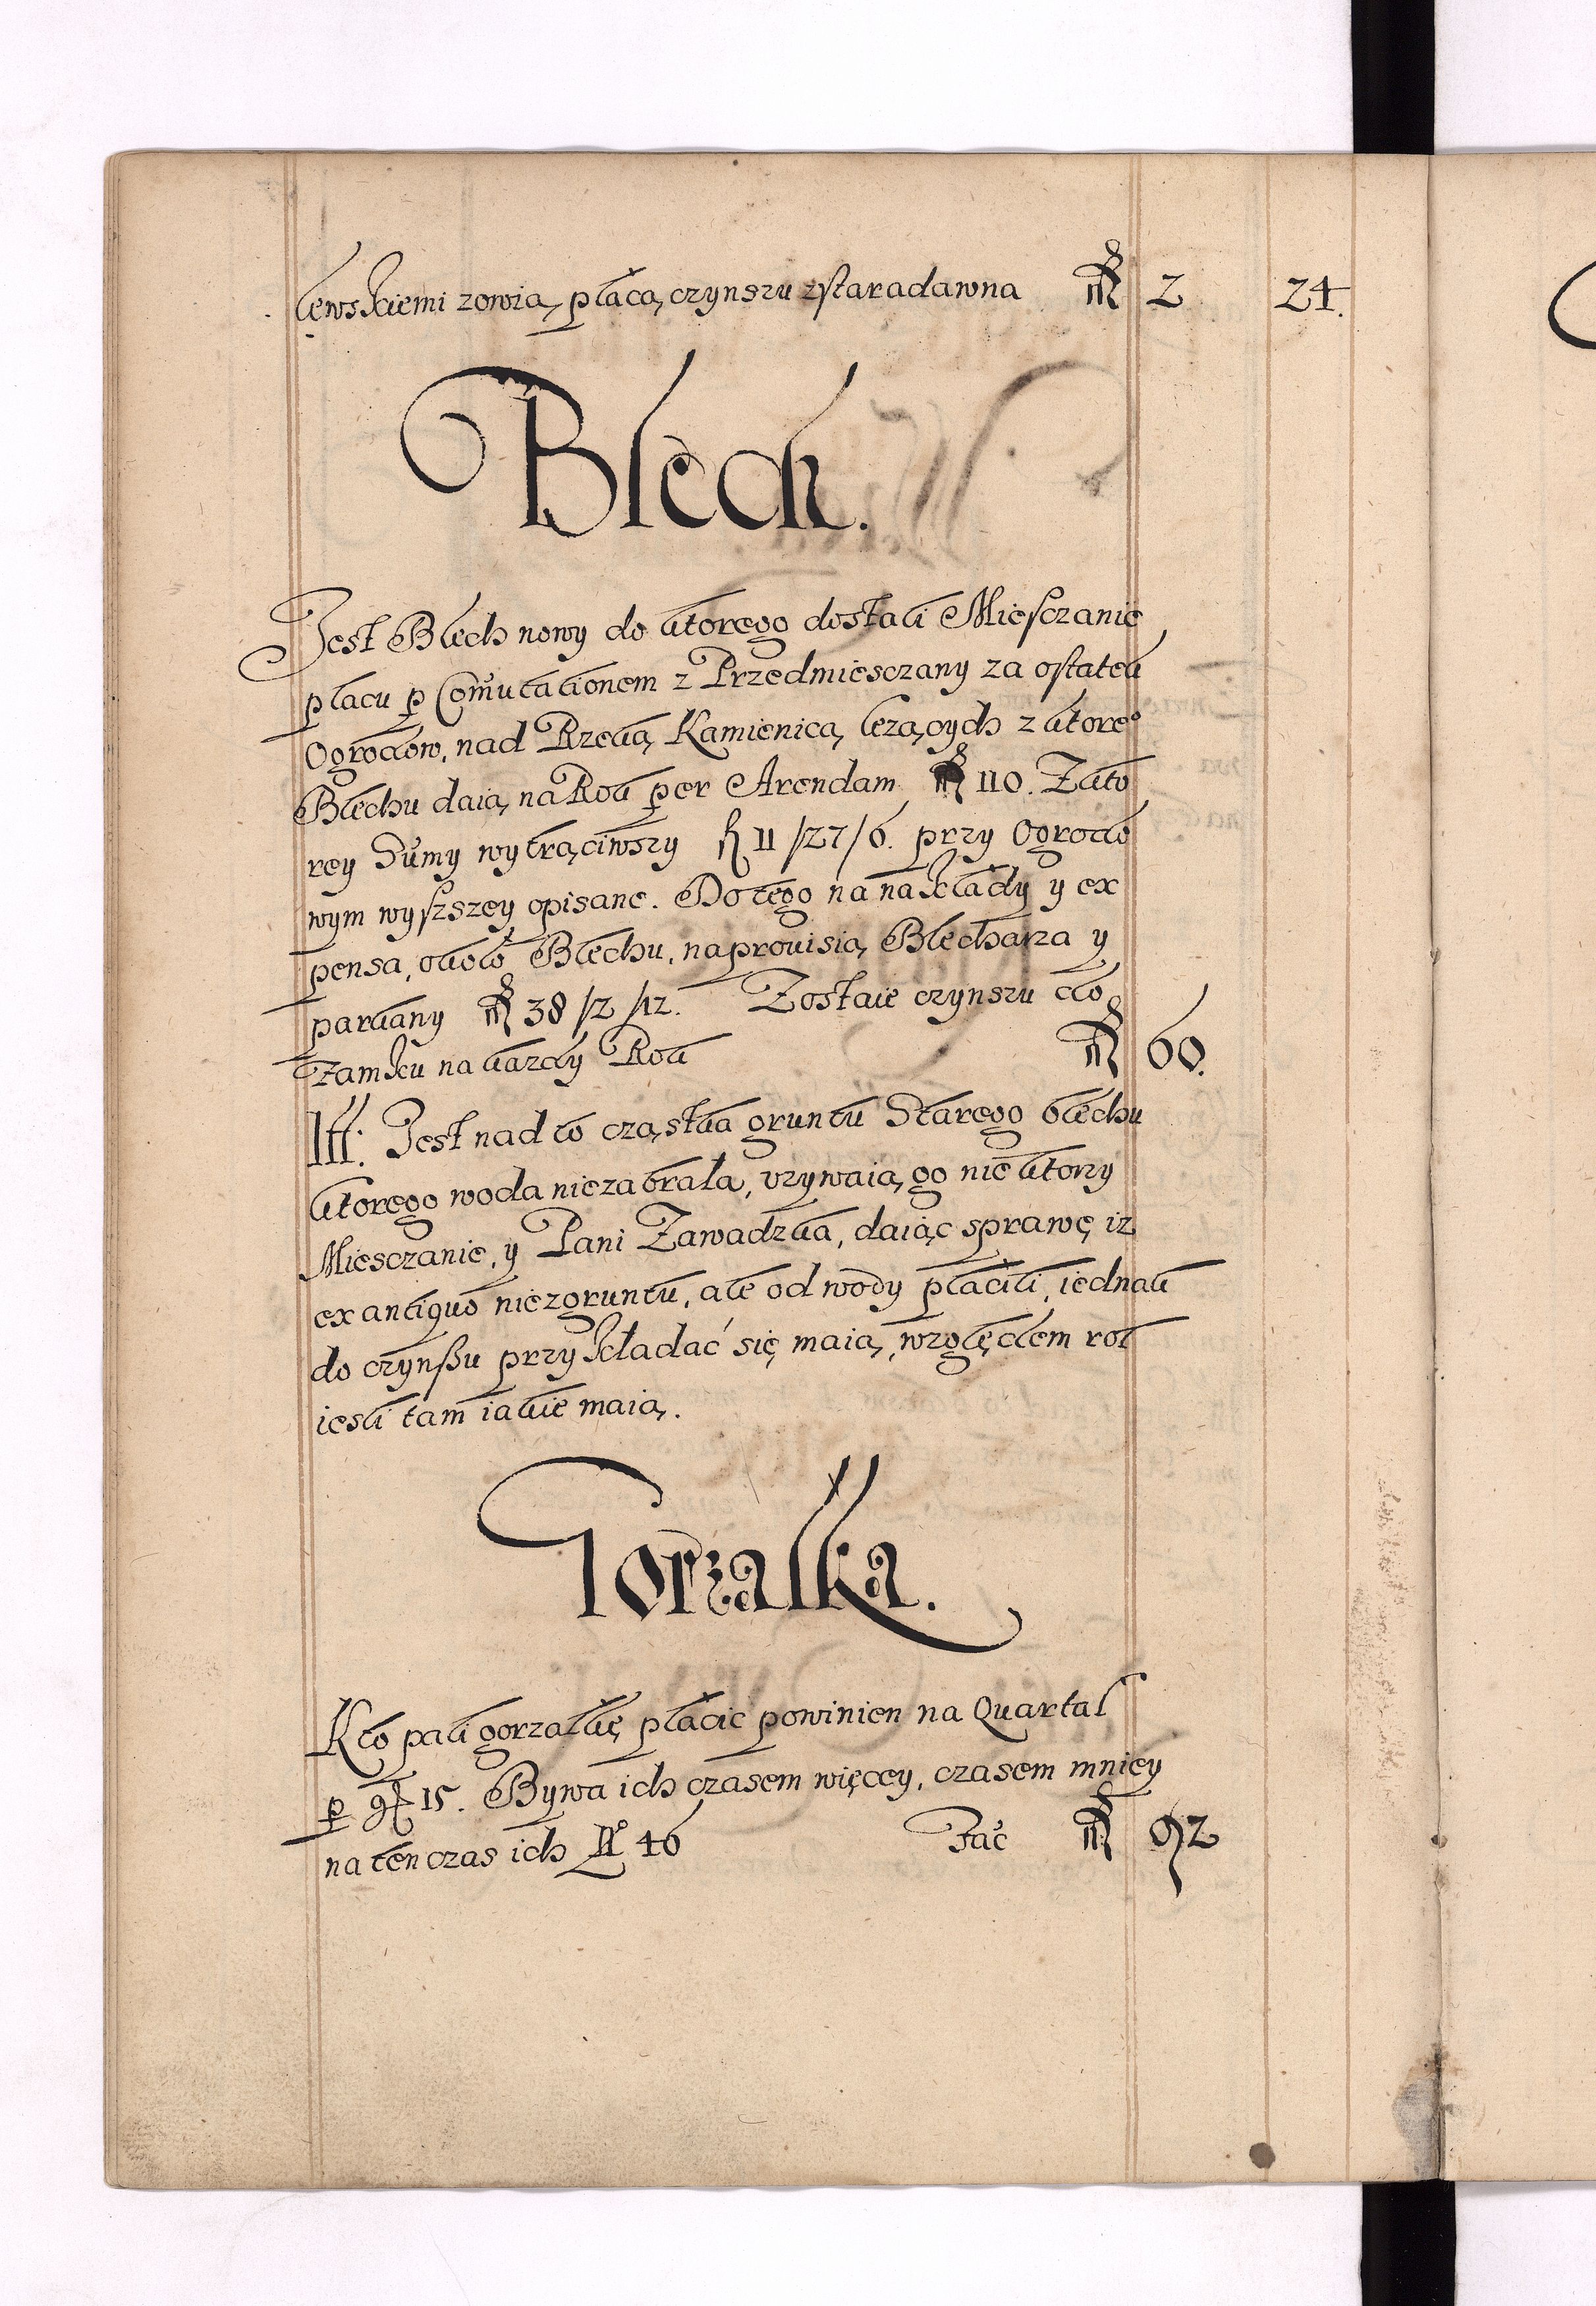 lewskiemi zowią, płacą czynszu zstaradawna fl 2 24.
Blech.
Jest Blech nowy do ktorego dostali Miesczanie
placu p Comutationem z Przedmiesczany za ostatek
Ogrodow, nad Rzeką Kamienicą leżących z ktore°
Blechu daią na Rok per Arendam fl 110. Zkto
rey Summy wytrąciwszy fl 11/27/6. przy Ogrodo
wym wyszszey opisane. Do tego na nakłady y ex
pensa, około Blechu, na prouisią Blecharza y
parkany fl 38/2/12. Zostaie czynszu do
Zamku na każdy Rok fl 60.
Itt: Jest nad to cząstka gruntu Starego blechu
ktorego woda niezabrała, vzywaią go niektorzy
Miesczanie, y Pani Zawadzka, daiąc sprawę iz
ex antiquo niezgruntu, ale od wody płacili, iednak
do czynßu przykładać się maią, względem rol
iesli tam iakie maią.
Gorzałka.
Kto pali gorzałkę płacic powinien na Quartal
p g 15. Bywa ich czasem więcey, czasem mniey
na ten czas ich N° 46 Fac fl 92